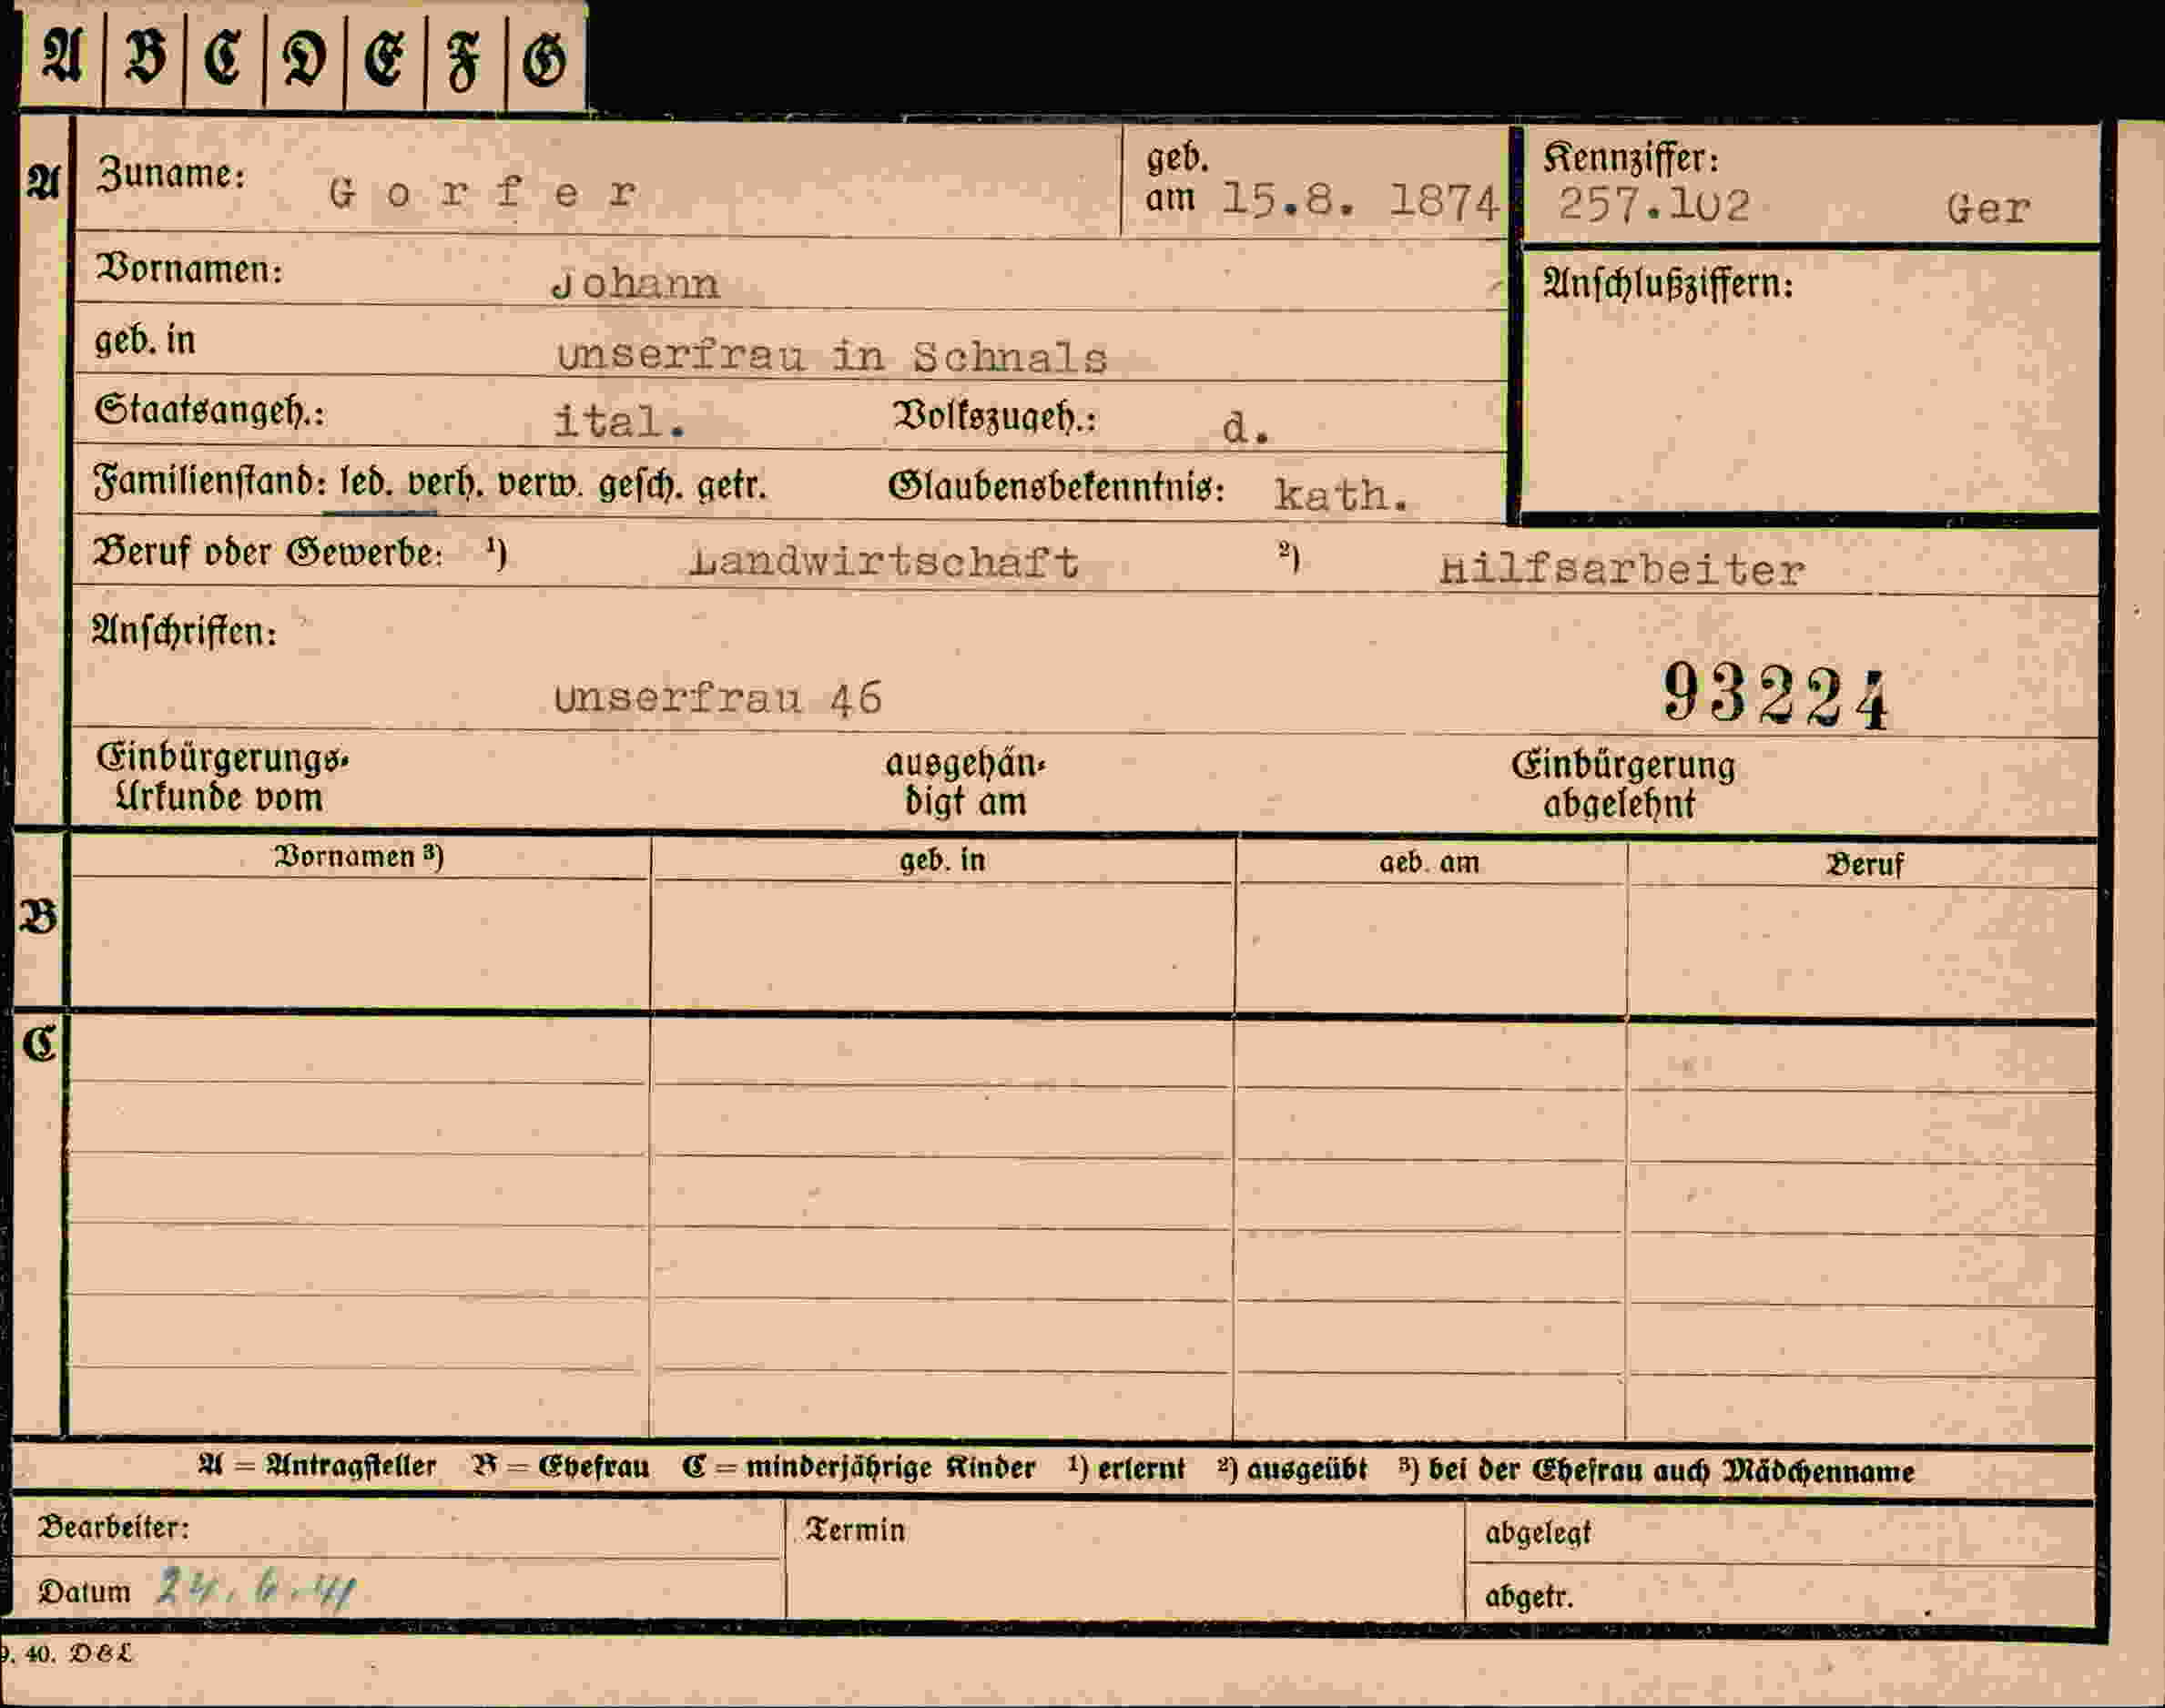 A B C D E F G
A Zuname: Gorfer geb. am 15.8. 1874 Kennziffer: 257.102 Ger
Vornamen: Johann Anschlußziffern:
geb. in Unserfrau in Schnals
Staatsangeh.: ital. Volkszugeh.: d.
Familienstand: led. verh. verw. gesch. getr. Glaubensbekenntnis: kath.
Beruf oder Gewerbe: ¹) Landwirtschaft ²) Hilfsarbeiter
Anschriften:
Unserfrau 46 93224
Einbürgerungs- ausgehän- Einbürgerung
Urkunde vom digt am abgelehnt
Vornamen ³) geb. in geb. am Beruf
B
C
A = Antragsteller B = Ehefrau C = minderjährige Kinder ¹) erlernt ²) ausgeübt ³) bei der Ehefrau auch Mädchenname
Bearbeiter: Termin abgelegt
Datum 24.6.41 abgetr.
9. 40. D&L